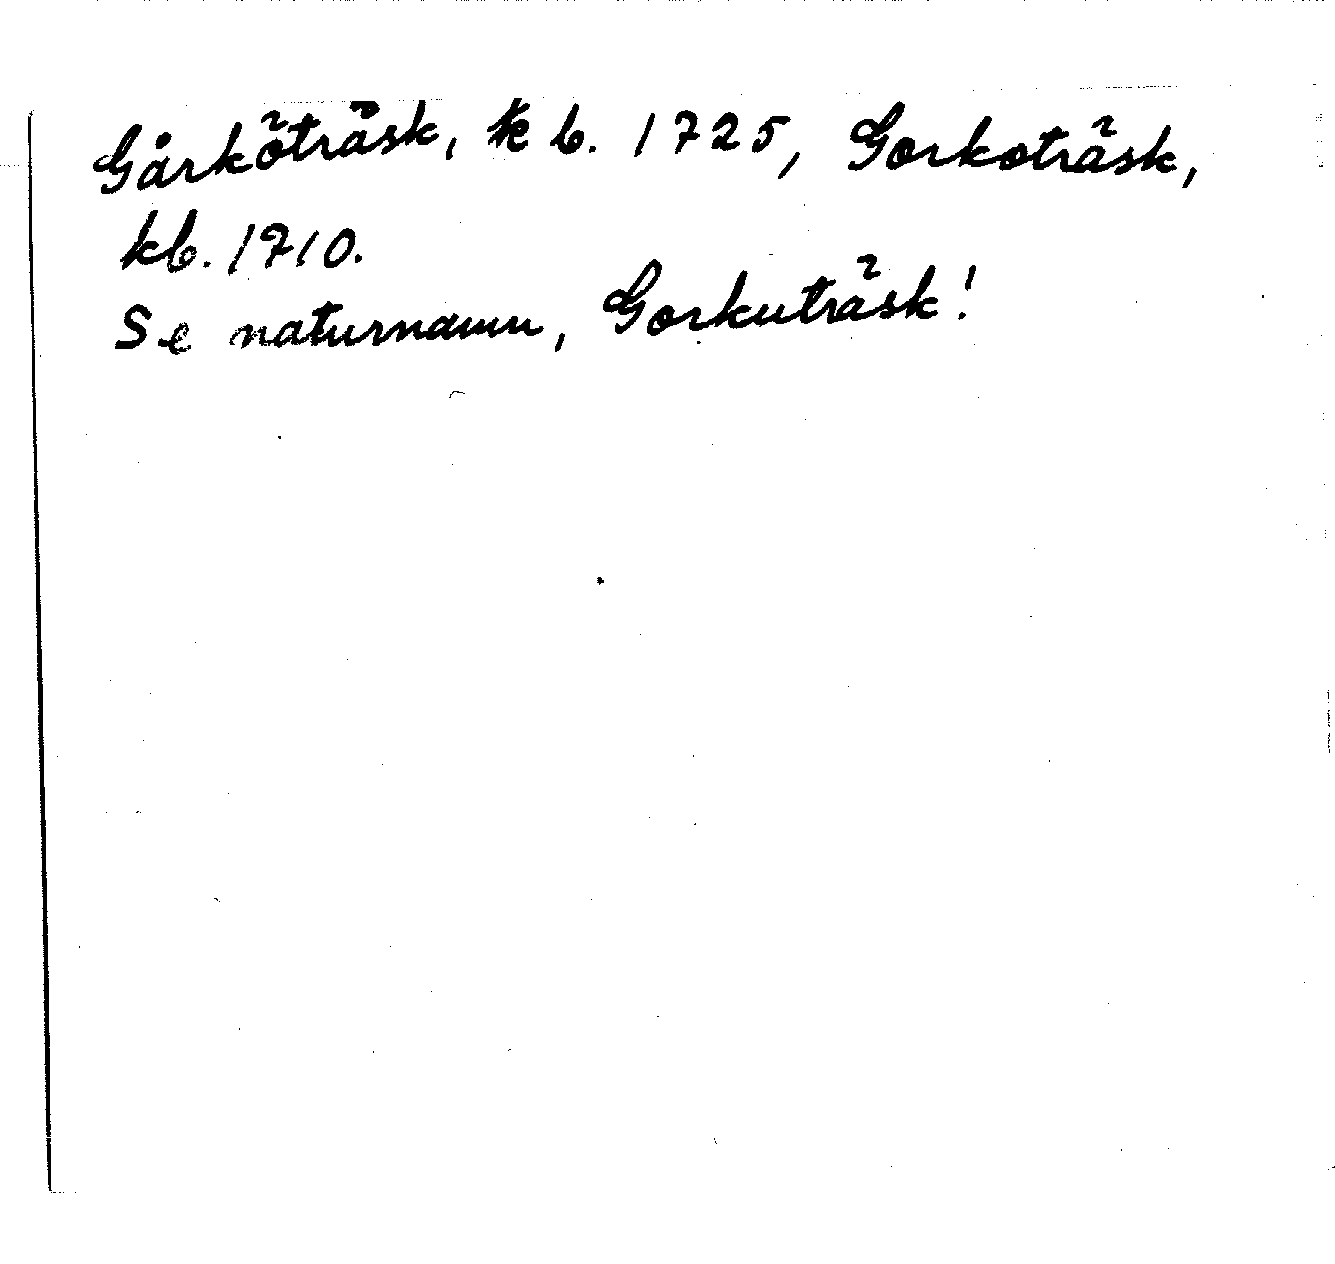 Gårköträsk, kb. 1725, Gorkoträsk,
kb. 1710.
Se naturnamn, Gorkuträsk!